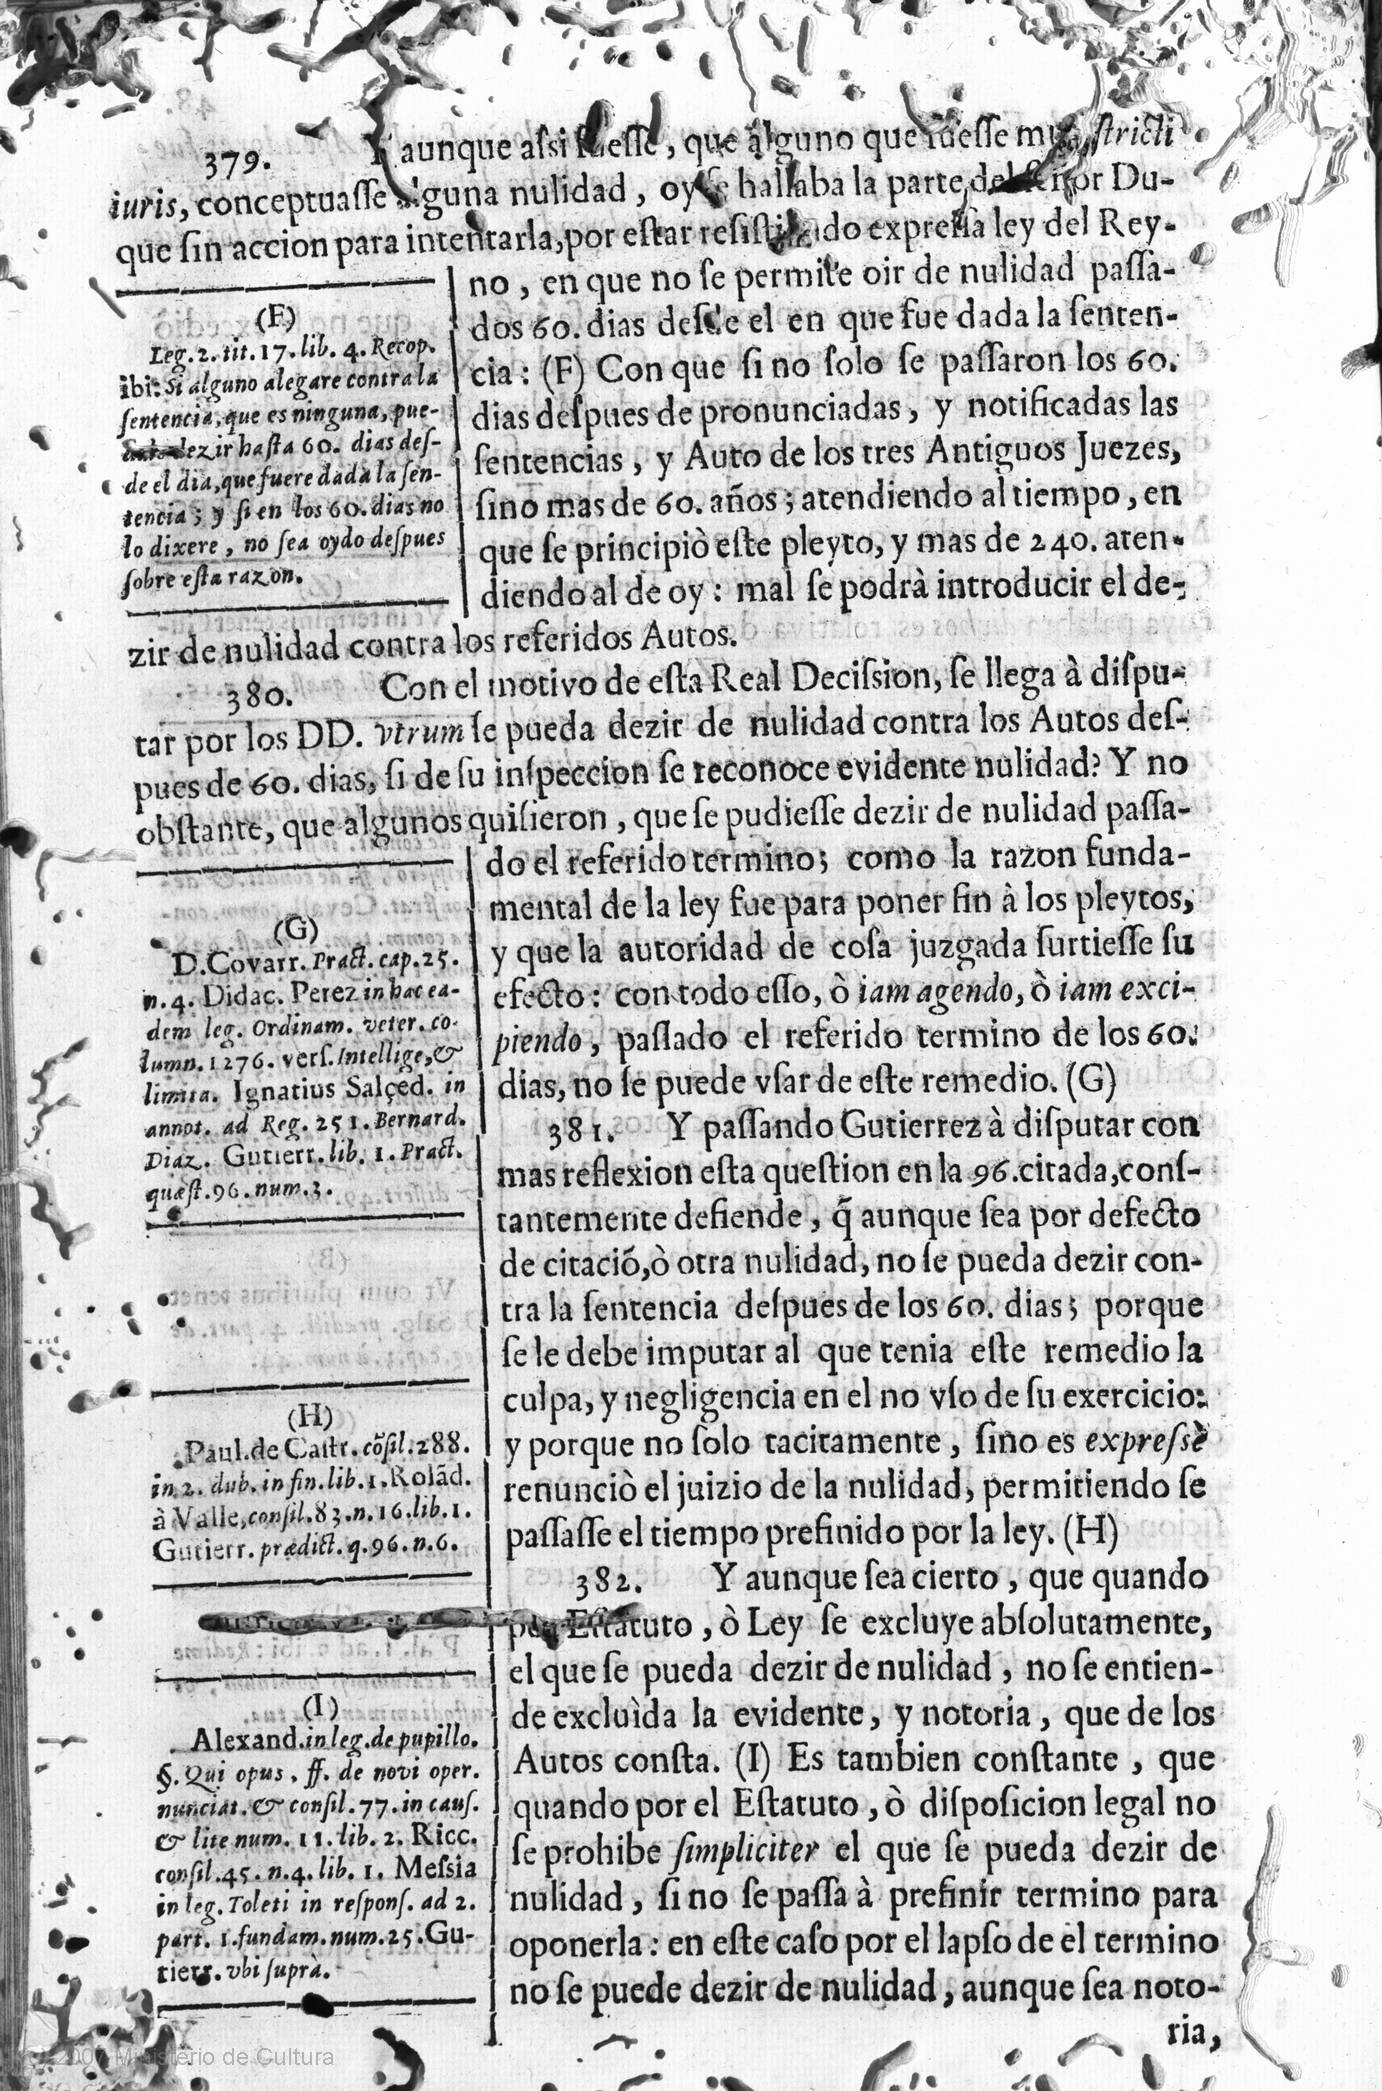 379. Y aunque aſsi fueſſe, que alguno que fueſſe muy ſtricti
iuris, conceptuaſſe alguna nulidad, oy ſe hallaba la parte del ſeñor Du-
que ſin accion para intentarla, por eſtar reſiſtiendo expreſſa ley del Rey-
no, en que no ſe permite oir de nulidad paſſa-
dos 60. dias deſde el en que fue dada la ſenten-
cia: (F) Con que ſi no ſolo ſe paſſaron los 60.
dias deſpues de pronunciadas, y notificadas las
ſentencias, y Auto de los tres Antiguos Juezes,
ſino mas de 60. años; atendiendo al tiempo, en
que ſe principiò eſte pleyto, y mas de 240. aten-
diendo al de oy: mal ſe podrà introducir el de-
zir de nulidad contra los referidos Autos.
(F)
Leg. 2. tit. 17. lib. 4. Recop.
ibi: Si alguno alegare contra la
ſentencia, que es ninguna, pue-
dezir haſta 60. dias deſ-
de el dia, que fuere dada la ſen-
tencia; y ſi en los 60. dias no
lo dixere, no ſea oydo deſpues
ſobre eſta razon.
380. Con el motivo de eſta Real Deciſsion, ſe llega à diſpu-
tar por los DD. vtrum ſe pueda dezir de nulidad contra los Autos deſ-
pues de 60. dias, ſi de ſu inſpeccion ſe reconoce evidente nulidad? Y no
obſtante, que algunos quiſieron, que ſe pudieſſe dezir de nulidad paſſa-
do el referido termino; como la razon funda-
mental de la ley fue para poner fin à los pleytos,
y que la autoridad de coſa juzgada ſurtieſſe ſu
efecto: con todo eſſo, ò iam agendo, ò iam exci-
piendo, paſſado el referido termino de los 60.
dias, no ſe puede vſar de eſte remedio. (G)
(G)
D. Covarr. Pract. cap. 25.
n. 4. Didac. Perez in hac ea-
dem leg. Ordinam. veter. co-
lumn. 1276. verſ. Intellige, &
limita. Ignatius Salçed. in
annot. ad Reg. 251. Bernard.
Diaz. Gutierr. lib. 1. Pract.
quæſt. 96. num. 3.
381. Y paſſando Gutierrez à diſputar con
mas reflexion eſta queſtion en la 96. citada, conſ-
tantemente defiende, q̃ aunque ſea por defecto
de citaciõ, ò otra nulidad, no ſe pueda dezir con-
tra la ſentencia deſpues de los 60. dias; porque
ſe le debe imputar al que tenia eſte remedio la
culpa, y negligencia en el no vſo de ſu exercicio:
y porque no ſolo tacitamente, ſino es expreſsè
renunciò el juizio de la nulidad, permitiendo ſe
paſſaſſe el tiempo prefinido por la ley. (H)
(H)
Paul. de Caſtr. cõſil. 288.
in 2. dub. in fin. lib. 1. Rolãd.
à Valle, conſil. 83. n. 16. lib. 1.
Gutierr. prædict. q. 96. n. 6.
382. Y aunque ſea cierto, que quando
por Eſtatuto, ò Ley ſe excluye abſolutamente,
el que ſe pueda dezir de nulidad, no ſe entien-
de excluìda la evidente, y notoria, que de los
Autos conſta. (I) Es tambien conſtante, que
quando por el Eſtatuto, ò diſpoſicion legal no
ſe prohibe ſimpliciter el que ſe pueda dezir de
nulidad, ſi no ſe paſſa à prefinir termino para
oponerla: en eſte caſo por el lapſo de el termino
no ſe puede dezir de nulidad, aunque ſea noto-
ria,
(I)
Alexand. in leg. de pupillo.
§. Qui opus, ff. de novi oper.
nunciat. & conſil. 77. in cauſ.
& lite num. 11. lib. 2. Ricc.
conſil. 45. n. 4. lib. 1. Meſsia
in leg. Toleti in reſponſ. ad 2.
part. 1. fundam. num. 25. Gu-
tierr. vbi ſuprà.
2007 Ministerio de Cultura